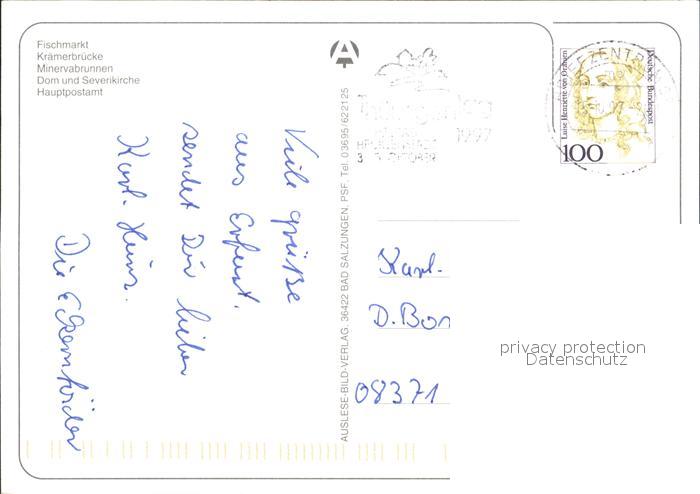 Fischmarkt
Krämerbrücke
Minervabrunnen
Dom und Severikirche
Hauptpostamt
Viele grüße
aus Erfurt.
sendet Dir lieber
Karl. Heinz.
Die Eckernförder
AUSLESE-BILD-VERLAG. 36422 BAD SALZUNGEN. PSF. Tel. 03695/622125
1997
Luise Henriette von Oranien
Deutsche Bundespost
100
Karl.
D. Bon
08371
privacy protection
Datenschutz